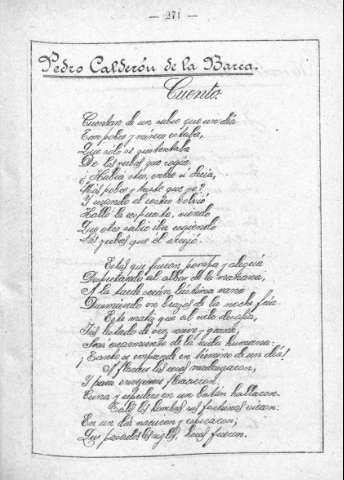 — 271 —
Pedro Calderón de la Barca.
Cuento.
Cuentan de un sabio que un día
Tan pobre y mísero estaba,
Que sólo se sustentaba
De las yerbas que cogía
¿Habrá otro, entre sí decía,
Más pobre y triste que yo?
Y cuando el rostro volvió
Halló la respuesta, viendo
Que otro sabio iba cogiendo
Las yerbas que él arrojó.
Estas que fueron pompa y alegría
Despertando al albor de la mañana,
A la tarde serán lástima vana
Durmiendo en brazos de la noche fría
Este matiz que al cielo desafía,
Iris listado de oro, nieve y grana,
Será escarmiento de la vida humana:
¡Tanto se emprende en término de un día!
A florecer las rosas madrugaron,
Y para envejecerse florecieron,
Cuna y sepulcro en un botón hallaron.
Tales los hombres sus fortunas vieron:
En un día nacieron y expiraron;
Que pasados los siglos, horas fueron.